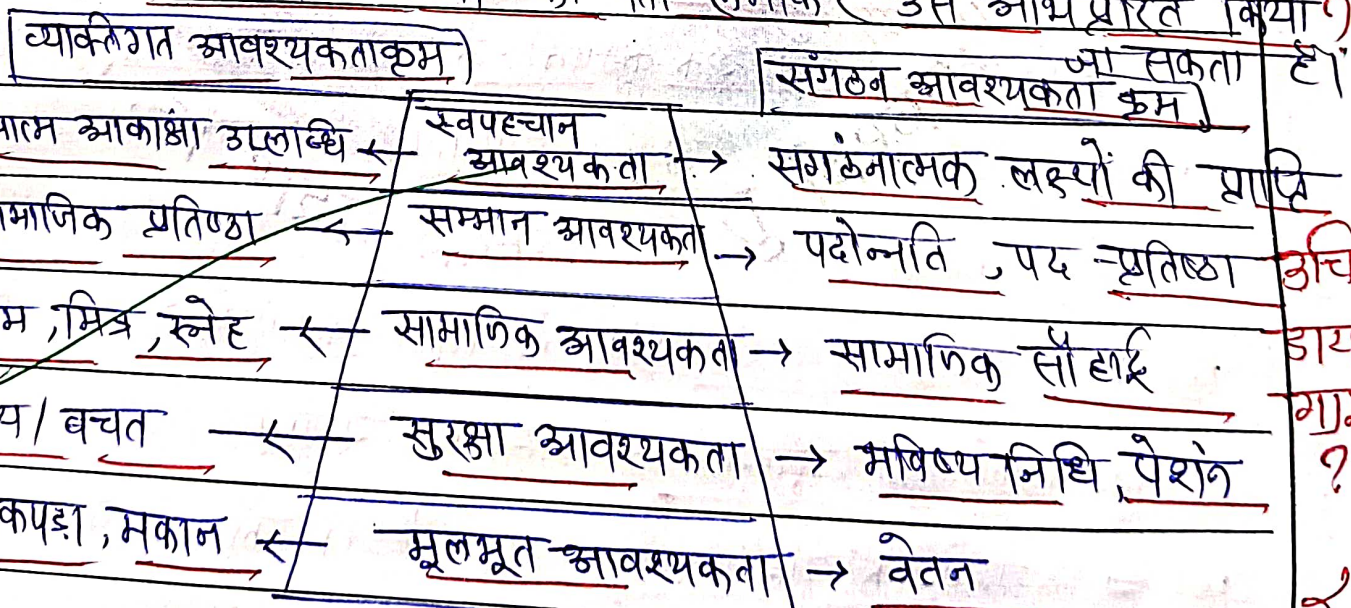 उसे अभिप्रेरित किया
जा सकता है।
व्यक्तिगत आवश्यकताक्रम
संगठन आवश्यकता क्रम
आत्म आकांक्षा उपलब्धि ← स्वपहचान आवश्यकता → सगंठनात्मक लक्ष्यों की प्राप्ति
सामाजिक प्रतिष्ठा ← सम्मान आवश्यकता → पदोन्नति, पद-प्रतिष्ठा
म, मित्र, स्नेह ← सामाजिक आवश्यकता → सामाजिक सौहार्द
य / बचत ← सुरक्षा आवश्यकता → भविष्य निधि, पेशंन
कपड़ा, मकान ← मूलभूत आवश्यकता → वेतन